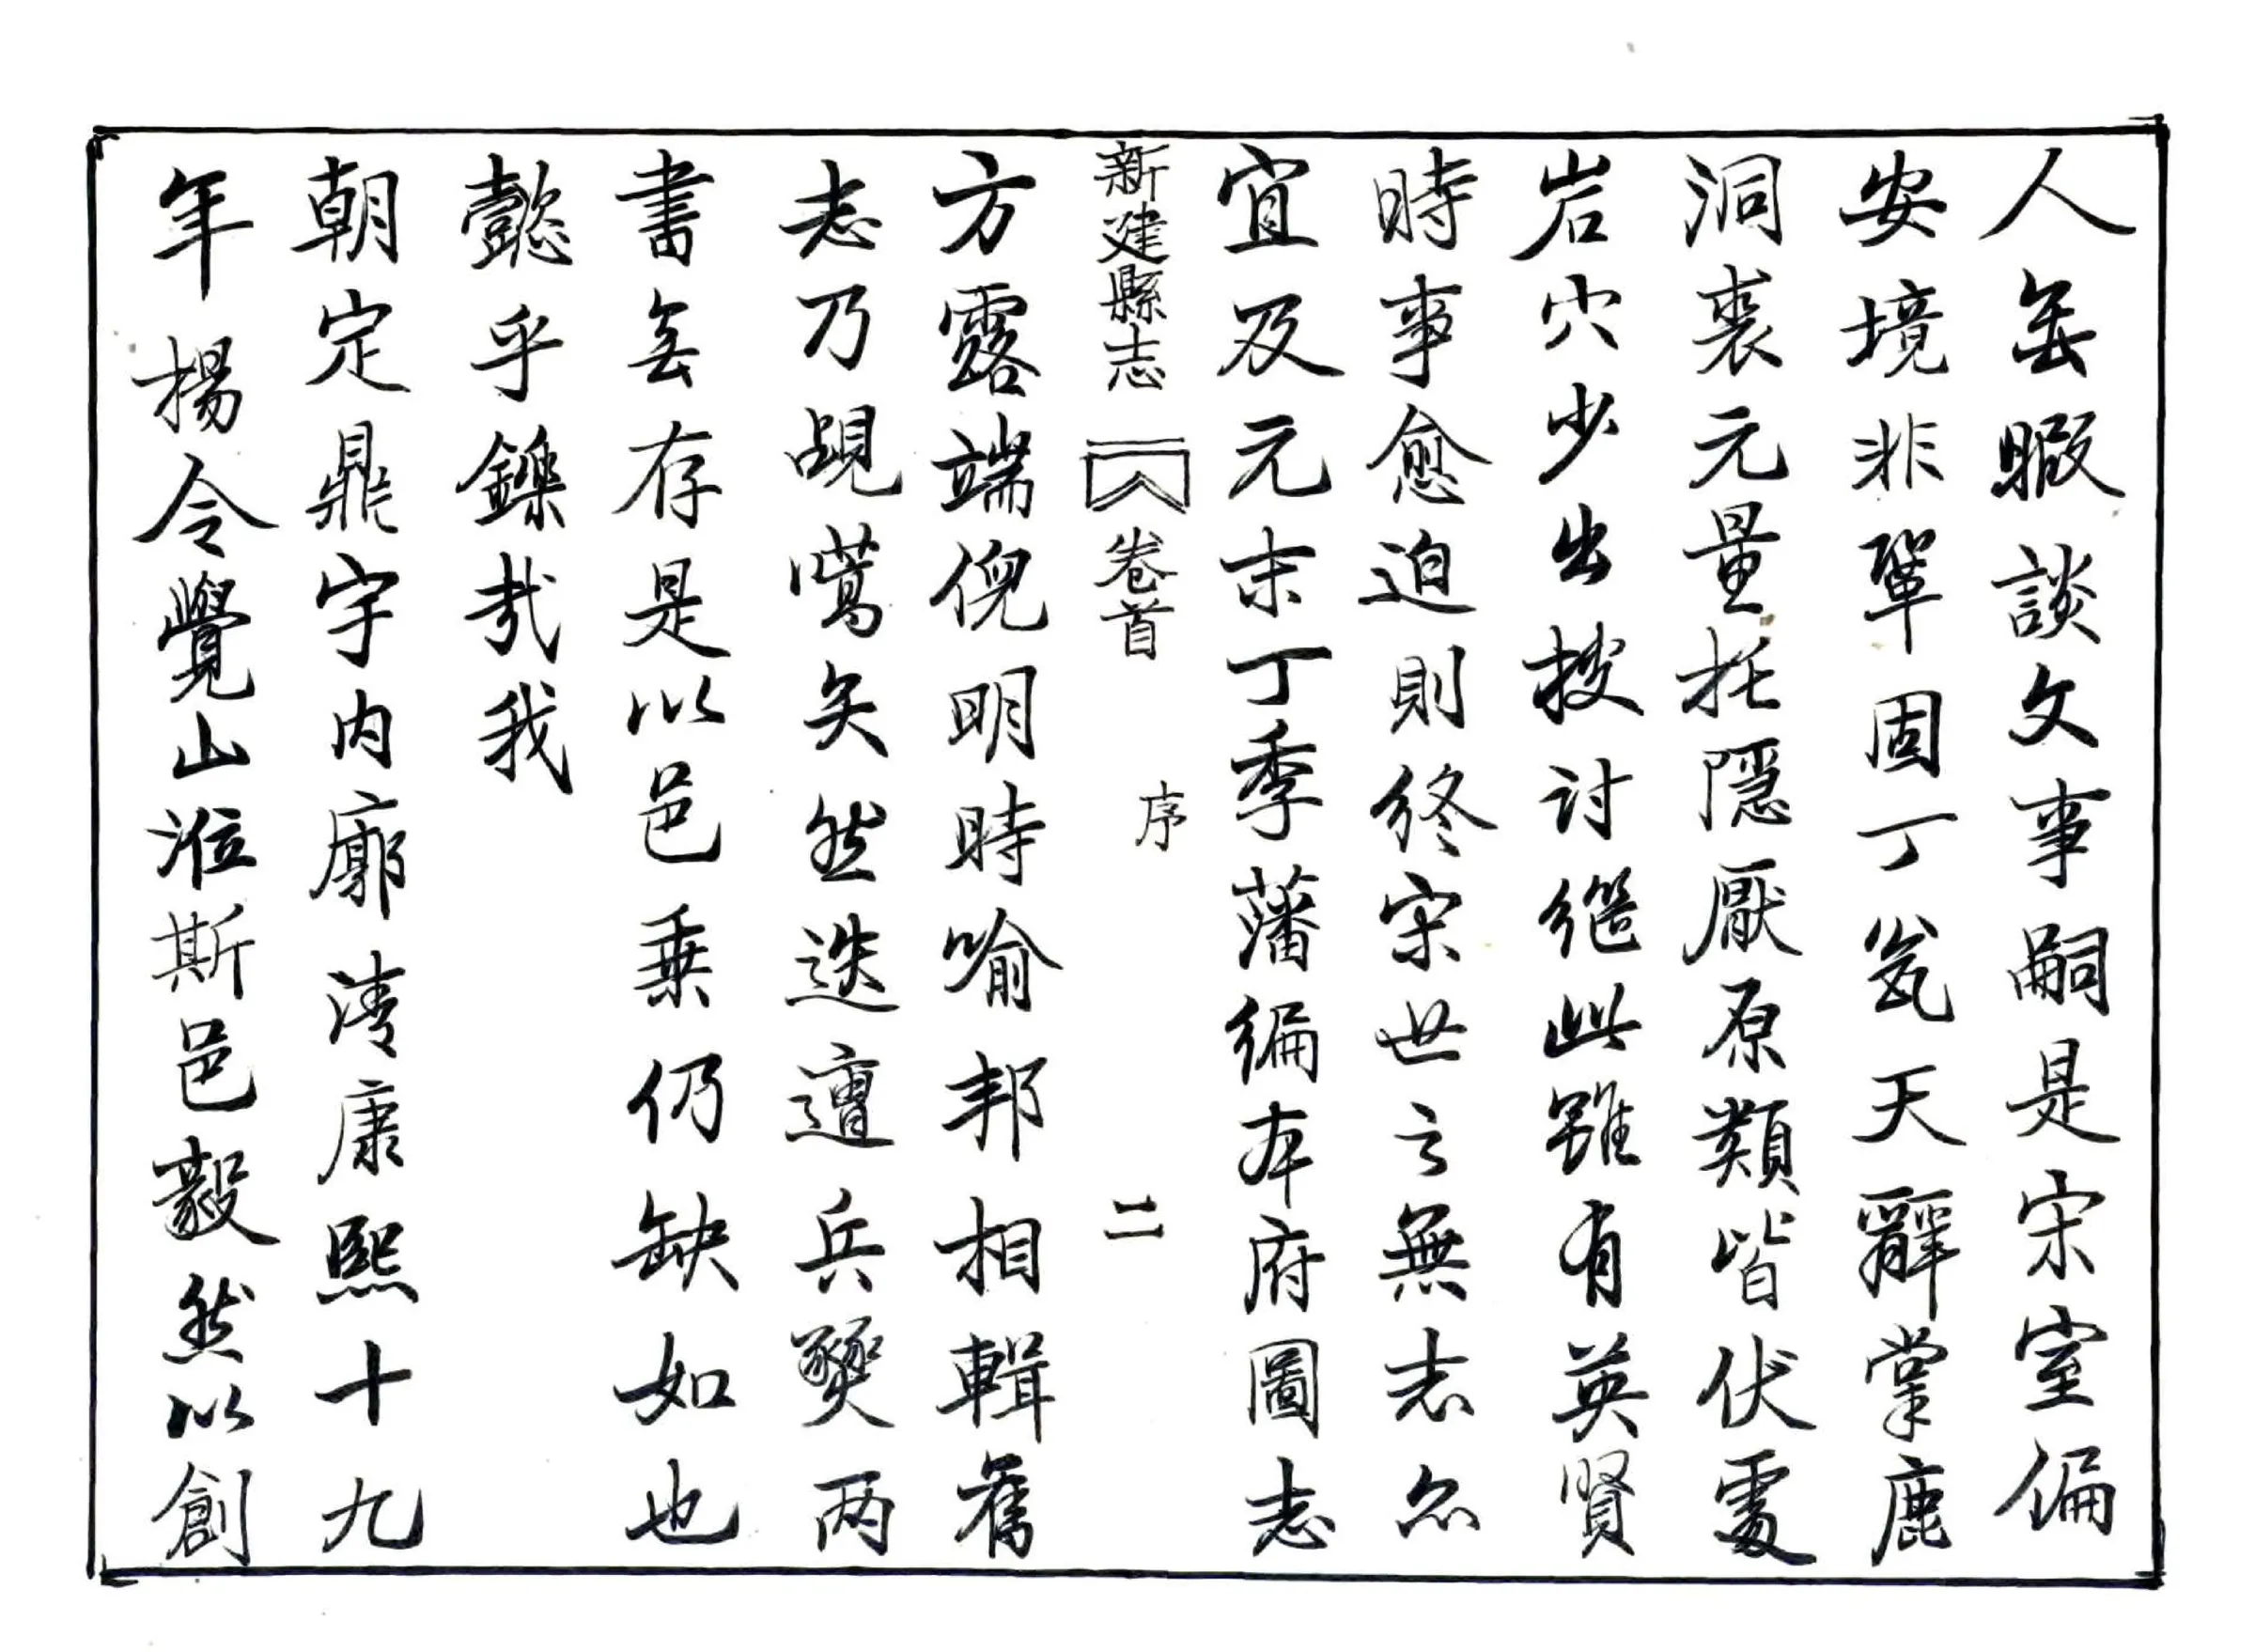 人無暇談文事嗣是宋室偏
安境非鞏固丁瓮天辭掌鹿
洞裘元量托隱厭原類皆伏處
岩穴少出搜討繼此雖有英賢
時事愈迫則終宋世之無志亦
宜及元末丁季藩編本府圖志
新建縣志 卷首 序 二
方露端倪明時喻邦相輯舊
志乃覘嚆矢然迭遭兵燹兩
書無存是以邑乗仍缺如也
懿乎鑠哉我
朝定鼎宇内廓清康熙十九
年楊令覺山涖斯邑毅然以創